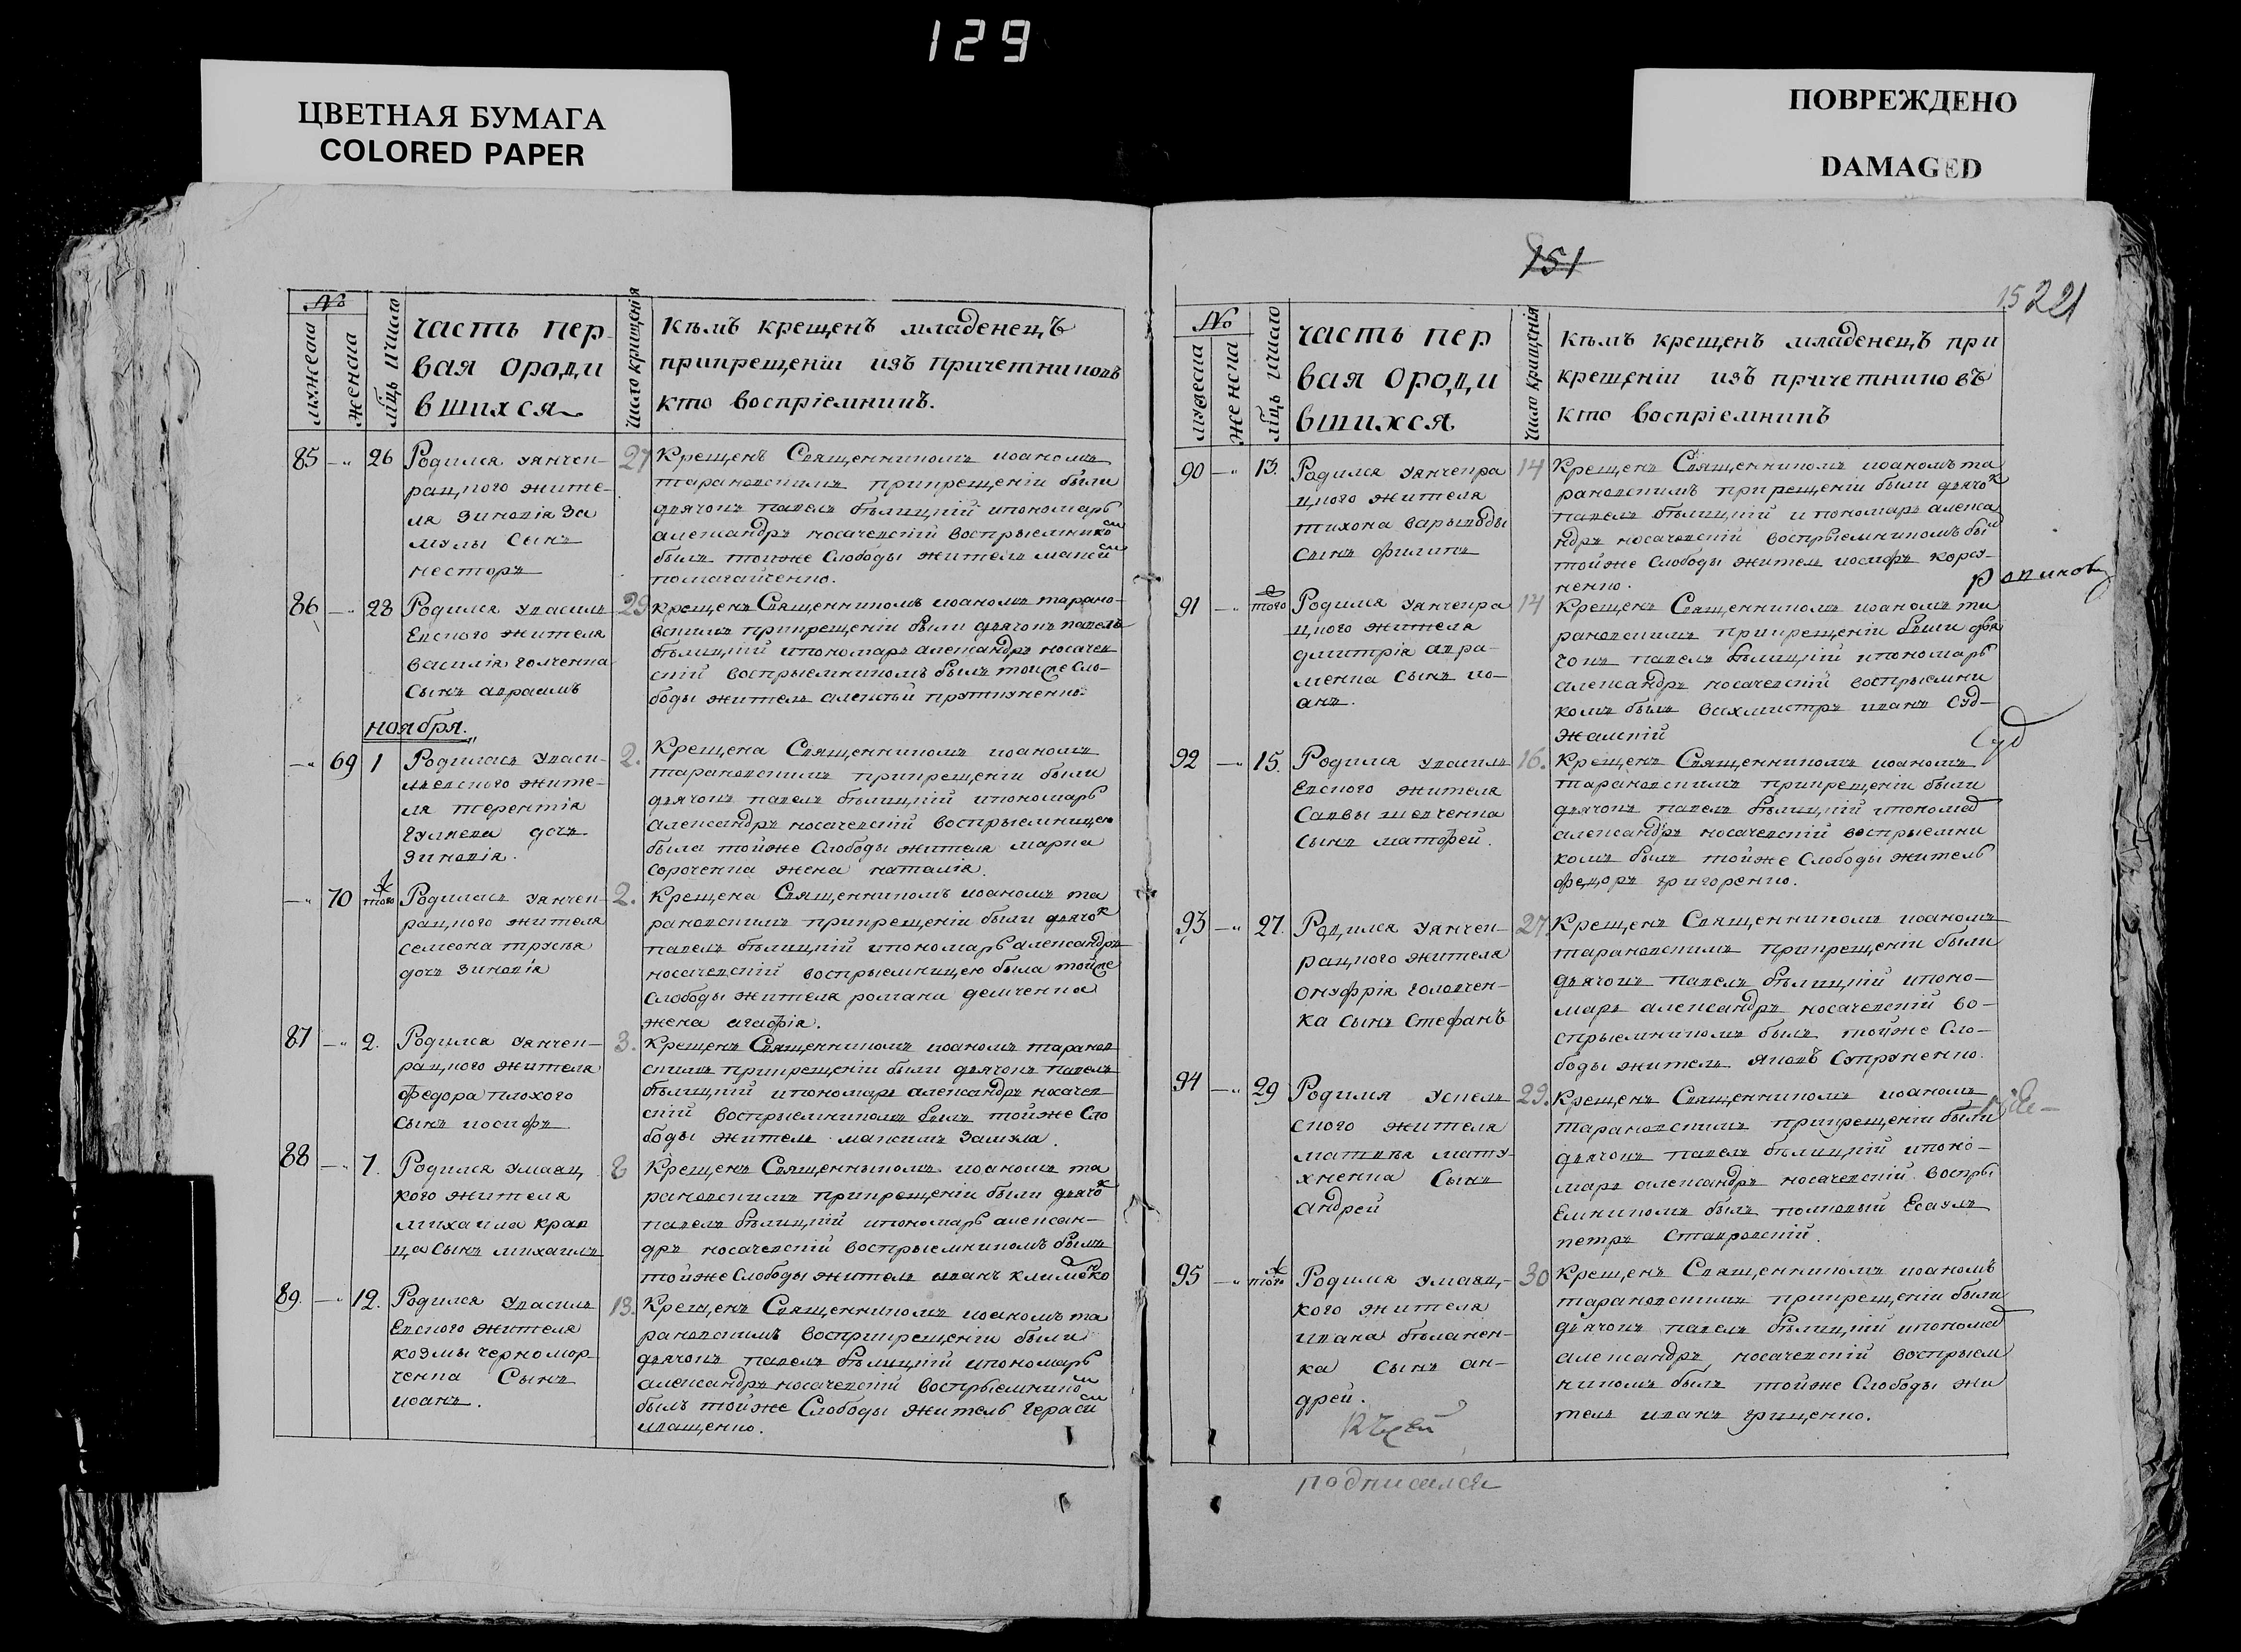 129
ЦВЕТНАЯ БУМАГА
COLORED PAPER
ПОВРЕЖДЕНО
DAMAGED
№
мужеска
женска
мѣць ичисло
часть пер
вая ороди
вшихся
Число крищенія
Кѣмъ крещенъ младенецъ
прикрещеніи изъ Причетниковъ
кто воспріемникъ.
85 26 27
Родился уянчек-
рацкого жите-
ля Зиновія За
мулы Сынъ
несторъ
Крещенъ Священникомъ иоаномъ
тарановскимъ прикрещеніи были
дьячокъ павелъ бѣлицкій ипономарь
александръ носачевскій воспрыемнико
былъ тойже Слободы житель
помагайченко.
86 28 29
Родился увасиль
Евского жителя
василія голченка
Сынъ авраамъ
крещенъ Священникомъ иоаномъ тарано-
вскимъ прикрещеніи были дьячокъ павелъ
бѣлицкій ипономарь александръ носачев
скій воспрыемникомъ былъ тойже Сло-
боды житель алексѣй
ноября.
69 1 2.
Родилась уваси-
лвевского жите-
ля терентія
гулкева дочь
Зиновія.
Крещена Священникомъ иоаномъ
тарановскимъ прикрещеніи были
дьячокъ павелъ бѣлицкій ипономарь
александръ носачевскій воспрыемницею
была тойже Слободы жителя марка
сороченка жена наталія.
70 того 2.
Родилась уянчек-
рацкого жителя
семеона трусѣя
дочь Зиновія
Крещена Священникомъ иоаномъ та
рановскимъ прикрещеніи были дьячок
павелъ бѣлицкій ипономарь александръ
носачевскій воспрыемницею была тойже
Слободы жителя романа демченка
жена агафія.
87 2. 3.
Родился уянчек-
рацкого жителя
федора плохого
Сынъ иосифъ
Крещенъ Священникомъ иоаномъ таранов
скимъ прикрещеніи были дьячокъ павелъ
бѣлицкій ипономарь александръ носачев
скій воспрыемникомъ былъ тойже Сло
боды житель максимъ Замула.
88 7. 8
Родился умаяц
кого жителя
михаила крав
ца Сынъ михаилъ
Крещенъ Священныкомъ иоаномъ та
рановскимъ прикрещеніи были дьячок
павелъ бѣлицкій ипономарь алексан-
дръ носачевскій воспрыемникомъ былъ
тойже Слободы житель иванъ
89. 12. 13.
Родился увасиль
Евского жителя
козмы черномор-
ченка Сынъ
иоанъ.
Крещенъ Священникомъ иоаномъ та
рановскимъ восприкрещеніи были
дьячокъ павелъ бѣлицкій ипономарь
александръ носачевскій воспрыемником
былъ тойже Слободы житель гераси
иващенко.
151
15 221
№
мужеска
женска
мѣць ичисло
часть пер
вая ороди
вшихся
Число крищенія
Кѣмъ крещенъ младенецъ при
крещеніи изъ причетниковъ
кто воспріемникъ
90 13. 14
Родился уянчекра
цкого жителя
тихона варыводы
Сынъ филипъ
Крещенъ Священникомъ иоаномъ та
рановскимъ прикрещеніи были дьячок
павелъ бѣлицкій ипономарь алекса
ндръ носачевскій воспрыемникомъ был
тойже Слободы житель иосифъ корсу-
ненко.
91 того 14
Родился уянчекра
цкого жителя
дмитрія авра-
менка сынъ ио-
анъ.
Крещенъ Священникомъ иоаномъ та
рановскимъ прикрещеніи были дья
чокъ павелъ бѣлицкій ипономарь
александръ носачевскій воспрыемни
комъ былъ вахмистръ иванъ Суд-
жанскій
92 15. 16.
Родился увасиль
Евского жителя
Саввы шевченка
сынъ матфей.
Крещенъ Священникомъ иоаномъ
тарановскимъ прикрещеніи были
дьячокъ павелъ бѣлицкій ипономар
александръ носачевскій воспрыемни
комъ былъ тойже Слободы житель
федоръ григоренко.
93 27. 27.
Родился уянчек-
рацкого жителя
онуфрія головчен-
ка сынъ Стефанъ
Крещенъ Священникомъ иоаномъ
тарановскимъ прикрещеніи были
дьячокъ павелъ бѣлицкій ипоно-
марь александръ носачевскій во-
спрыемникомъ былъ тойже Сло-
боды житель яковъ Супруненко.
94 29 29.
Родился
ского жителя
матвѣя мату-
хненка Сынъ
андрей
Крещенъ Священникомъ иоаномъ
тарановскимъ прикрещеніи были
дьячокъ павелъ бѣлицкій ипоно-
марь александръ носачевскій воспры
Емникомъ былъ полковый Есаулъ
петръ Ставровскій.
95 того 30
Родился умаяц-
кого жителя
ивана бѣланен-
ка сынъ ан-
дрей.
Крещенъ Священникомъ иоаномъ
тарановскимъ прикрещеніи были
дьячокъ павелъ бѣлицкій ипономар
александръ носачевскій воспрыем
никомъ былъ тойже Слободы жи
тель иванъ грищенко.
подписался